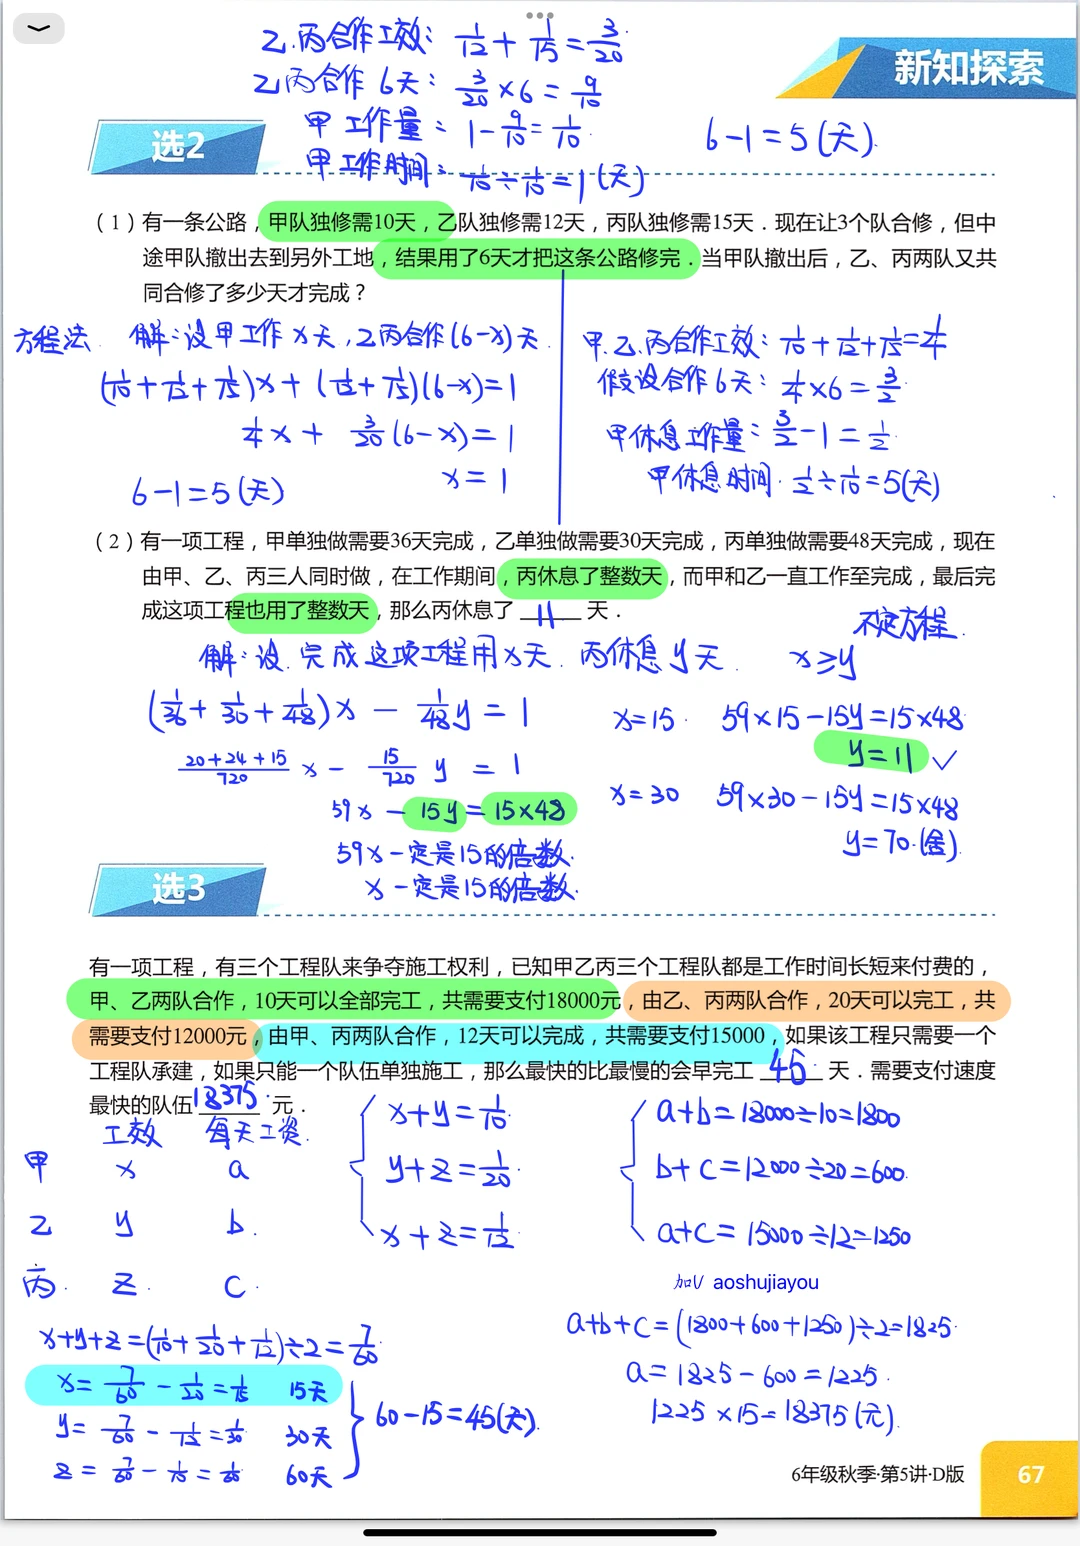 乙.丙合作工效: 1/12 + 1/15 = 3/20
乙丙合作6天: 3/20 × 6 = 9/10
甲工作量: 1 - 9/10 = 1/10
甲工作时间: 1/10 ÷ 1/10 = 1(天)
6-1=5(天).
新知探索
选2
(1)有一条公路，甲队独修需10天，乙队独修需12天，丙队独修需15天．现在让3个队合修，但中
途甲队撤出去到另外工地，结果用了6天才把这条公路修完．当甲队撤出后，乙、丙两队又共
同合修了多少天才完成？
方程法. 解:设甲工作x天,乙丙合作(6-x)天.
(1/10 + 1/12 + 1/15)x + (1/12 + 1/15)(6-x)=1
1/4x + 3/20(6-x)=1
x=1
6-1=5(天)
甲.乙.丙合作工效: 1/10 + 1/12 + 1/15 = 1/4
假设合作6天: 1/4 × 6 = 3/2
甲休息工作量: 3/2 - 1 = 1/2
甲休息时间. 1/2 ÷ 1/10 = 5(天)
(2)有一项工程，甲单独做需要36天完成，乙单独做需要30天完成，丙单独做需要48天完成，现在
由甲、乙、丙三人同时做，在工作期间，丙休息了整数天，而甲和乙一直工作至完成，最后完
成这项工程也用了整数天，那么丙休息了 11 天．
不定方程.
解:设.完成这项工程用x天.丙休息y天. x≥y
(1/36 + 1/30 + 1/48)x - 1/48y = 1
(20+24+15)/720 x - 15/720 y = 1
59x - 15y = 15×48
59x一定是15的倍数.
x一定是15的倍数.
x=15. 59×15-15y=15×48
y=11 ✓
x=30 59×30-15y=15×48
y=70.(舍).
选3
有一项工程，有三个工程队来争夺施工权利，已知甲乙丙三个工程队都是工作时间长短来付费的，
甲、乙两队合作，10天可以全部完工，共需要支付18000元，由乙、丙两队合作，20天可以完工，共
需要支付12000元，由甲、丙两队合作，12天可以完成，共需要支付15000，如果该工程只需要一个
工程队承建，如果只能一个队伍单独施工，那么最快的比最慢的会早完工 45 天．需要支付速度
最快的队伍 18375 元．
工效 每天工资.
甲 x a
乙 y b.
丙. z. c.
x+y=1/10
y+z=1/20
x+z=1/12
a+b=18000÷10=1800
b+c=12000÷20=600.
a+c=15000÷12=1250
加V aoshujiayou
x+y+z=(1/10+1/20+1/12)÷2=7/60
x=7/60-1/20=1/15 15天
y=7/60-1/12=1/30 30天
z=7/60-1/10=1/60 60天
60-15=45(天).
a+b+c=(1800+600+1250)÷2=1825.
a=1825-600=1225.
1225×15=18375(元).
6年级秋季·第5讲·D版
67